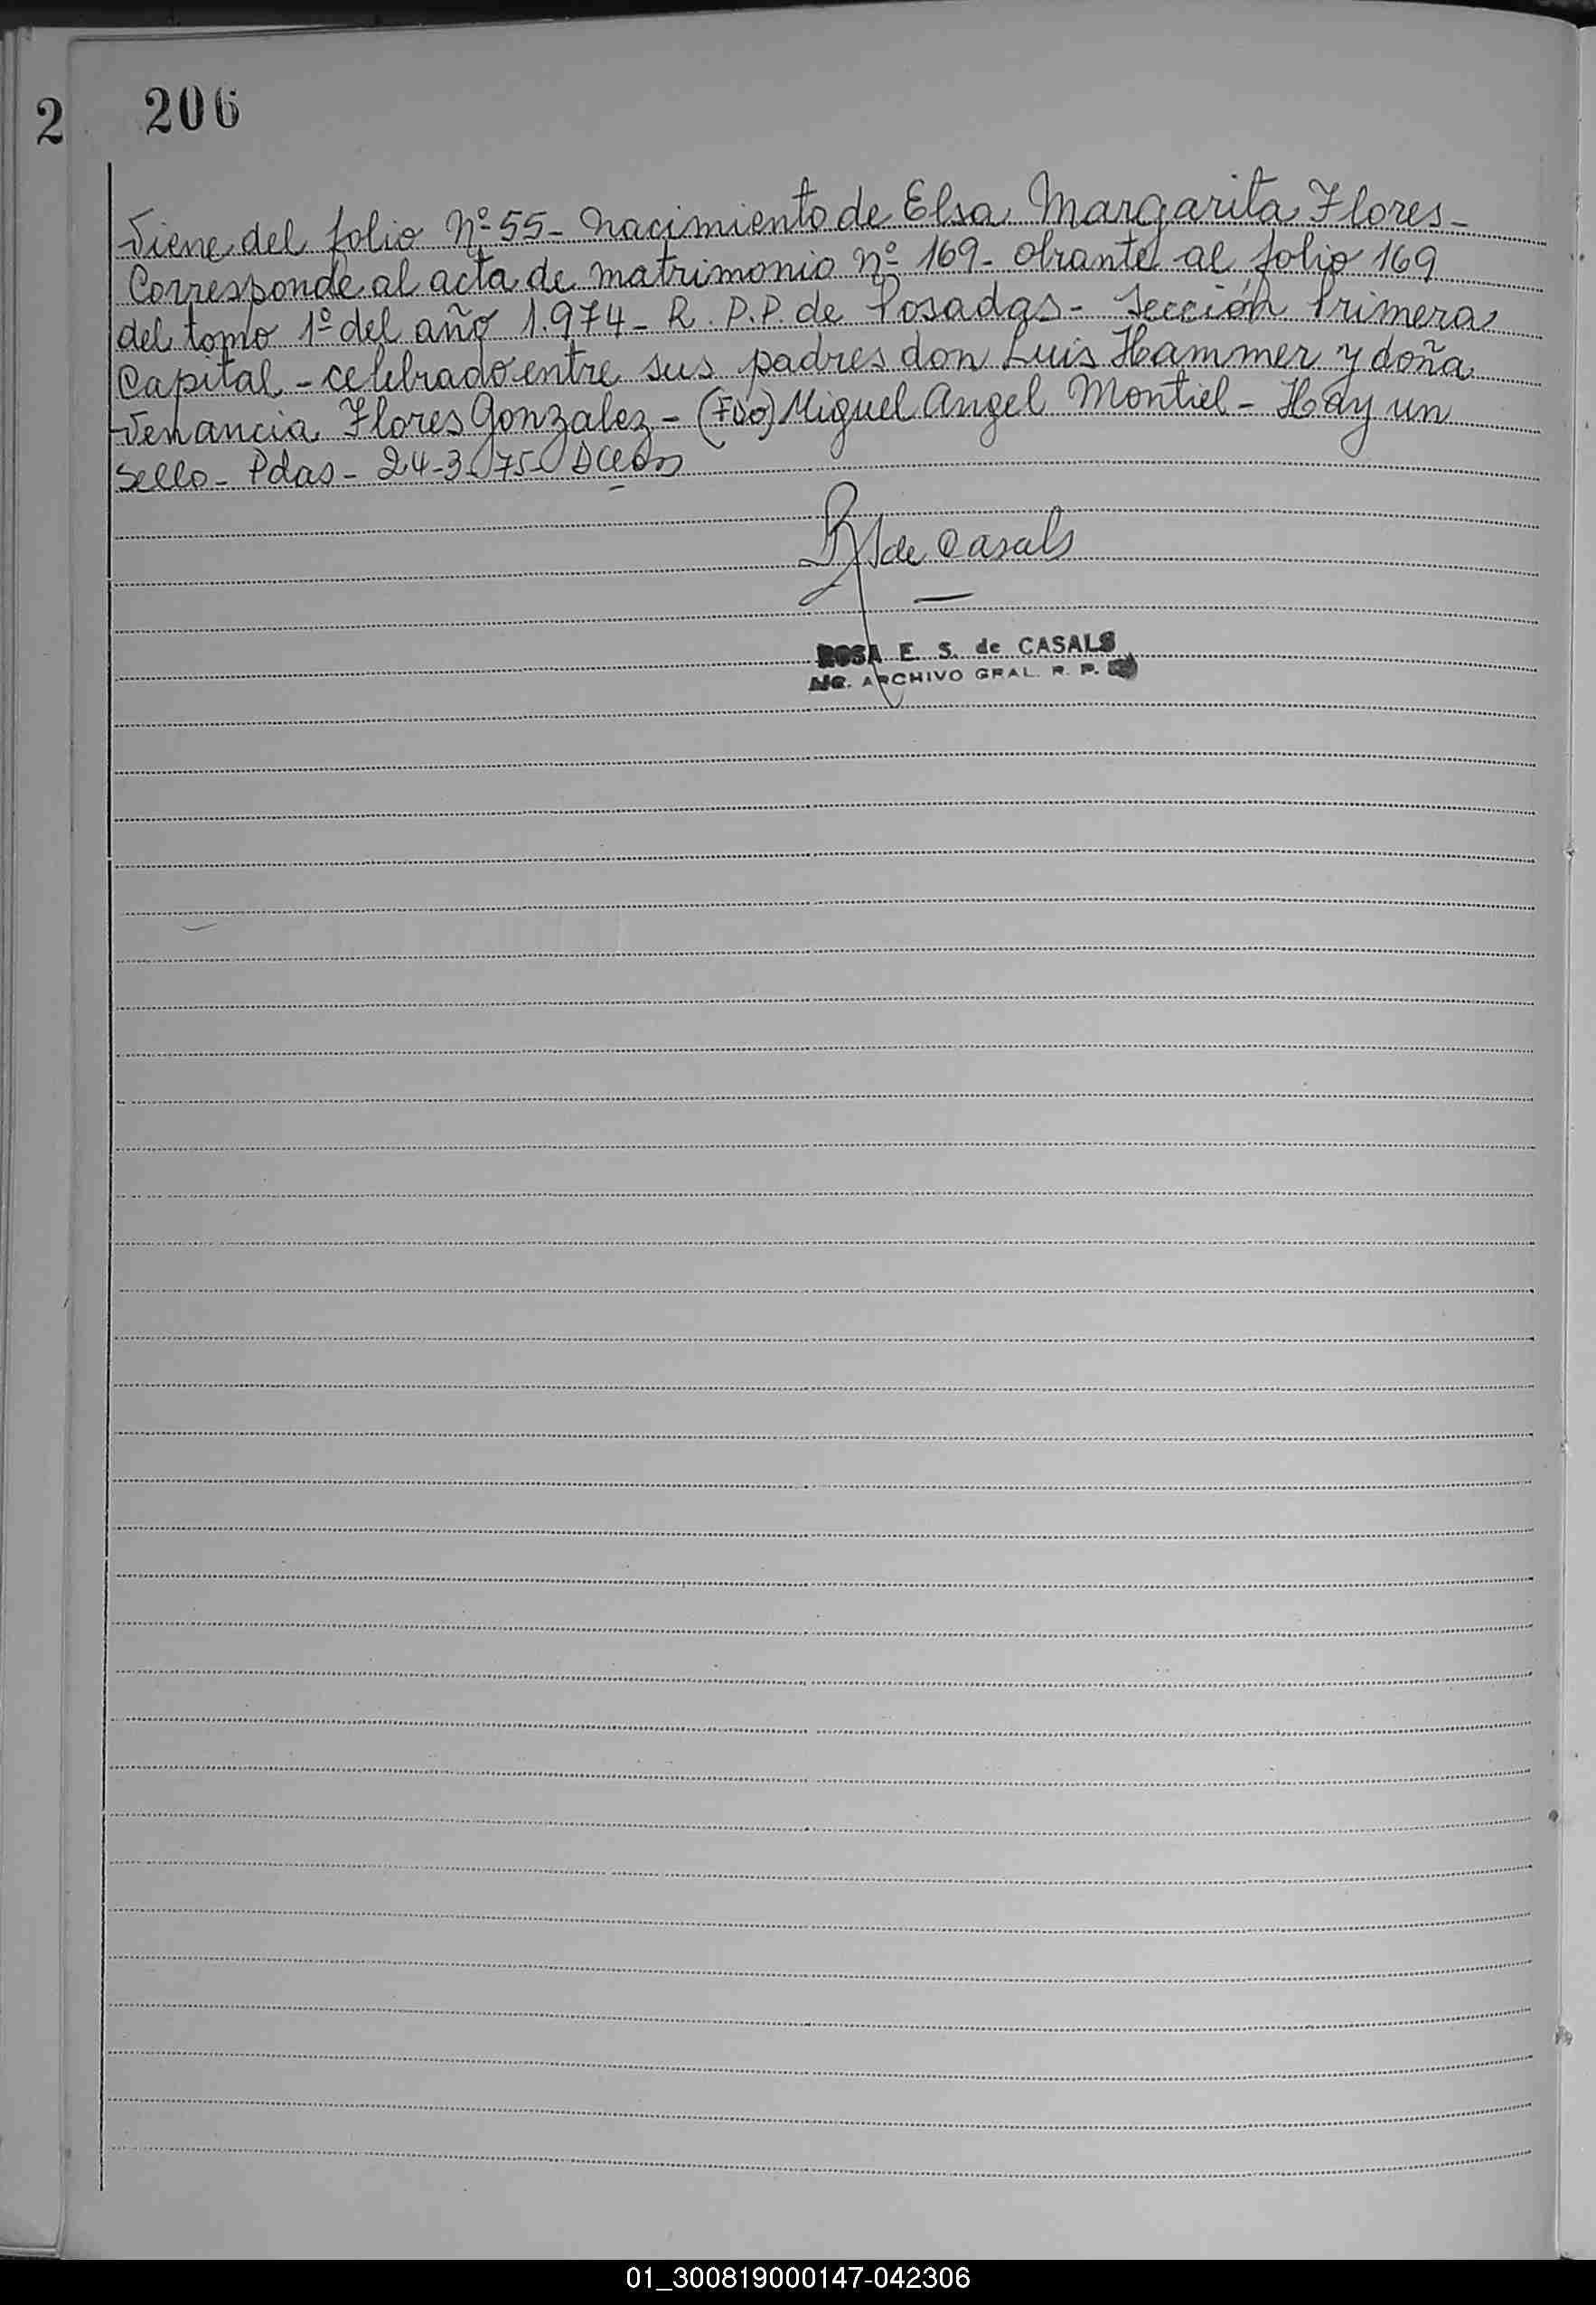 2 206
Viene del folio Nº 55 - Nacimiento de Elsa Margarita Flores -
Corresponde al acta de matrimonio nº 169 - obrante al folio 169
del tomo 1º del año 1.974 - R. P.P. de Posadas - Sección Primera
Capital - celebrado entre sus padres don Luis Hammer y doña
Venancia Flores Gonzalez - (FDO) Miguel Angel Montiel - Hay un
sello - Pdas - 24-3-75
de Casals
ROSA E. S. de CASALS
ARCHIVO GRAL. R. P.
01_300819000147-042306